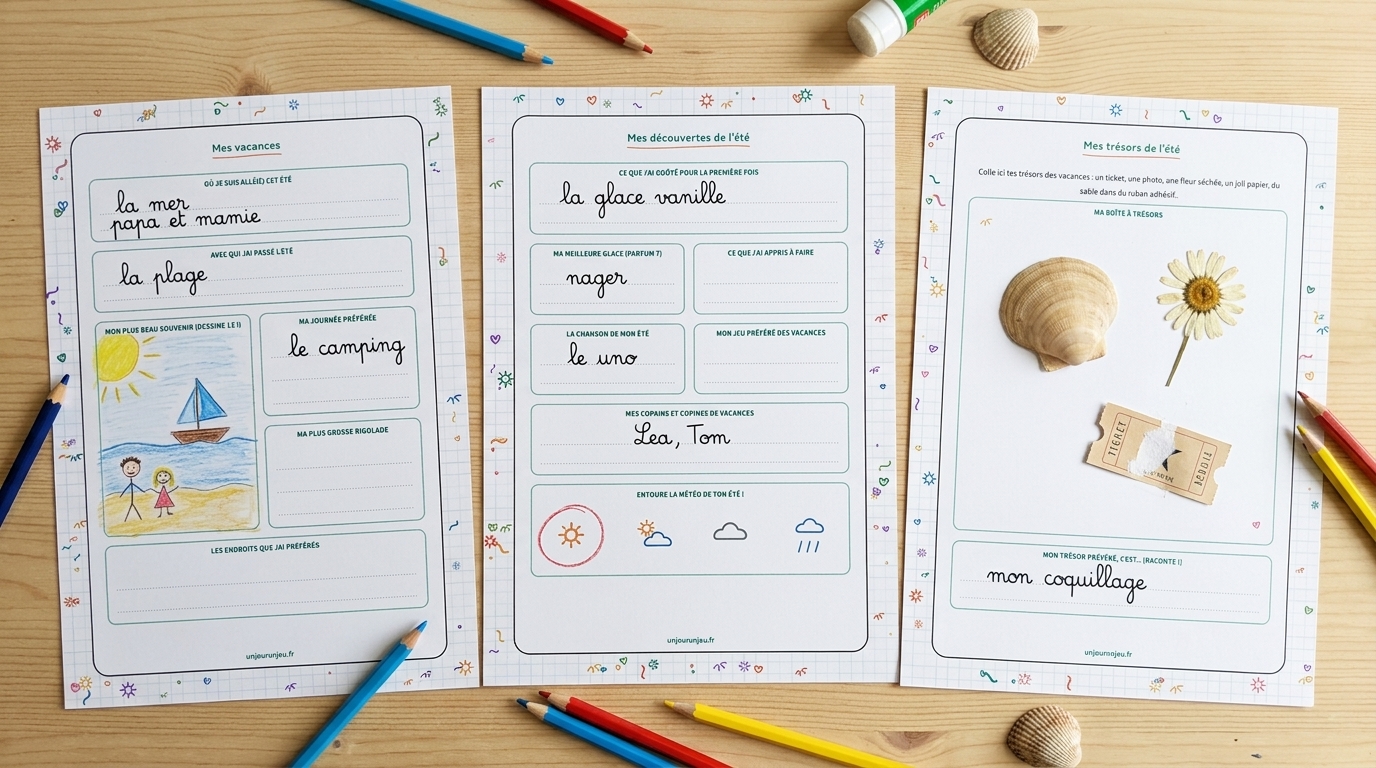 Mes vacances
OÙ JE SUIS ALLÉ(E) CET ÉTÉ
la mer
papa et mamie
AVEC QUI J'AI PASSÉ L'ÉTÉ
la plage
MON PLUS BEAU SOUVENIR (DESSINE LE !)
MA JOURNÉE PRÉFÉRÉE
le camping
MA PLUS GROSSE RIGOLADE
LES ENDROITS QUE J'AI PRÉFÉRÉS
unjourunjeu.fr
Mes découvertes de l'été
CE QUE J'AI GOÛTÉ POUR LA PREMIÈRE FOIS
la glace vanille
MA MEILLEURE GLACE (PARFUM ?)
nager
CE QUE J'AI APPRIS À FAIRE
LA CHANSON DE MON ÉTÉ
le uno
MON JEU PRÉFÉRÉ DES VACANCES
MES COPAINS ET COPINES DE VACANCES
Lea, Tom
ENTOURE LA MÉTÉO DE TON ÉTÉ !
unjourunjeu.fr
Mes trésors de l'été
Colle ici tes trésors des vacances : un ticket, une photo, une fleur séchée, un joli papier, du
sable dans du ruban adhésif..
MA BOÎTE À TRÉSORS
TIGRET
MON TRÉSOR PRÉVÉRÉ, C'EST... (RACONTE !)
mon coquillage